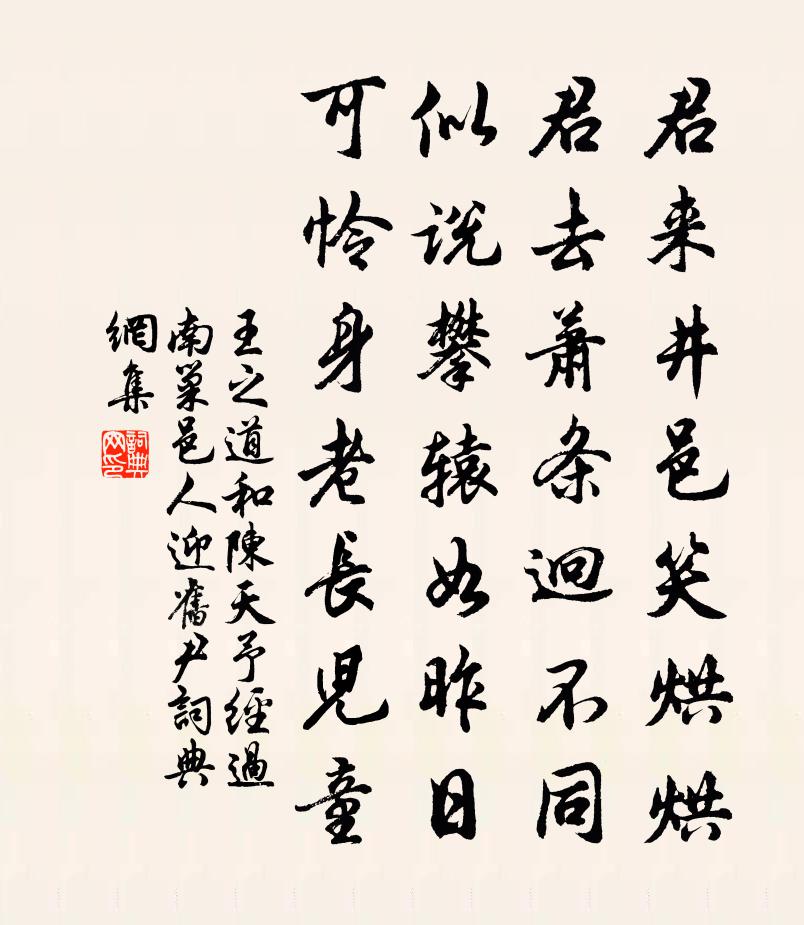 君来井邑笑烘烘
君去萧条迥不同
似说攀辕如昨日
可怜身老長児童
王之道和陳天予經過
南巢邑人迎舊尹詞典
網集
詞典
网印